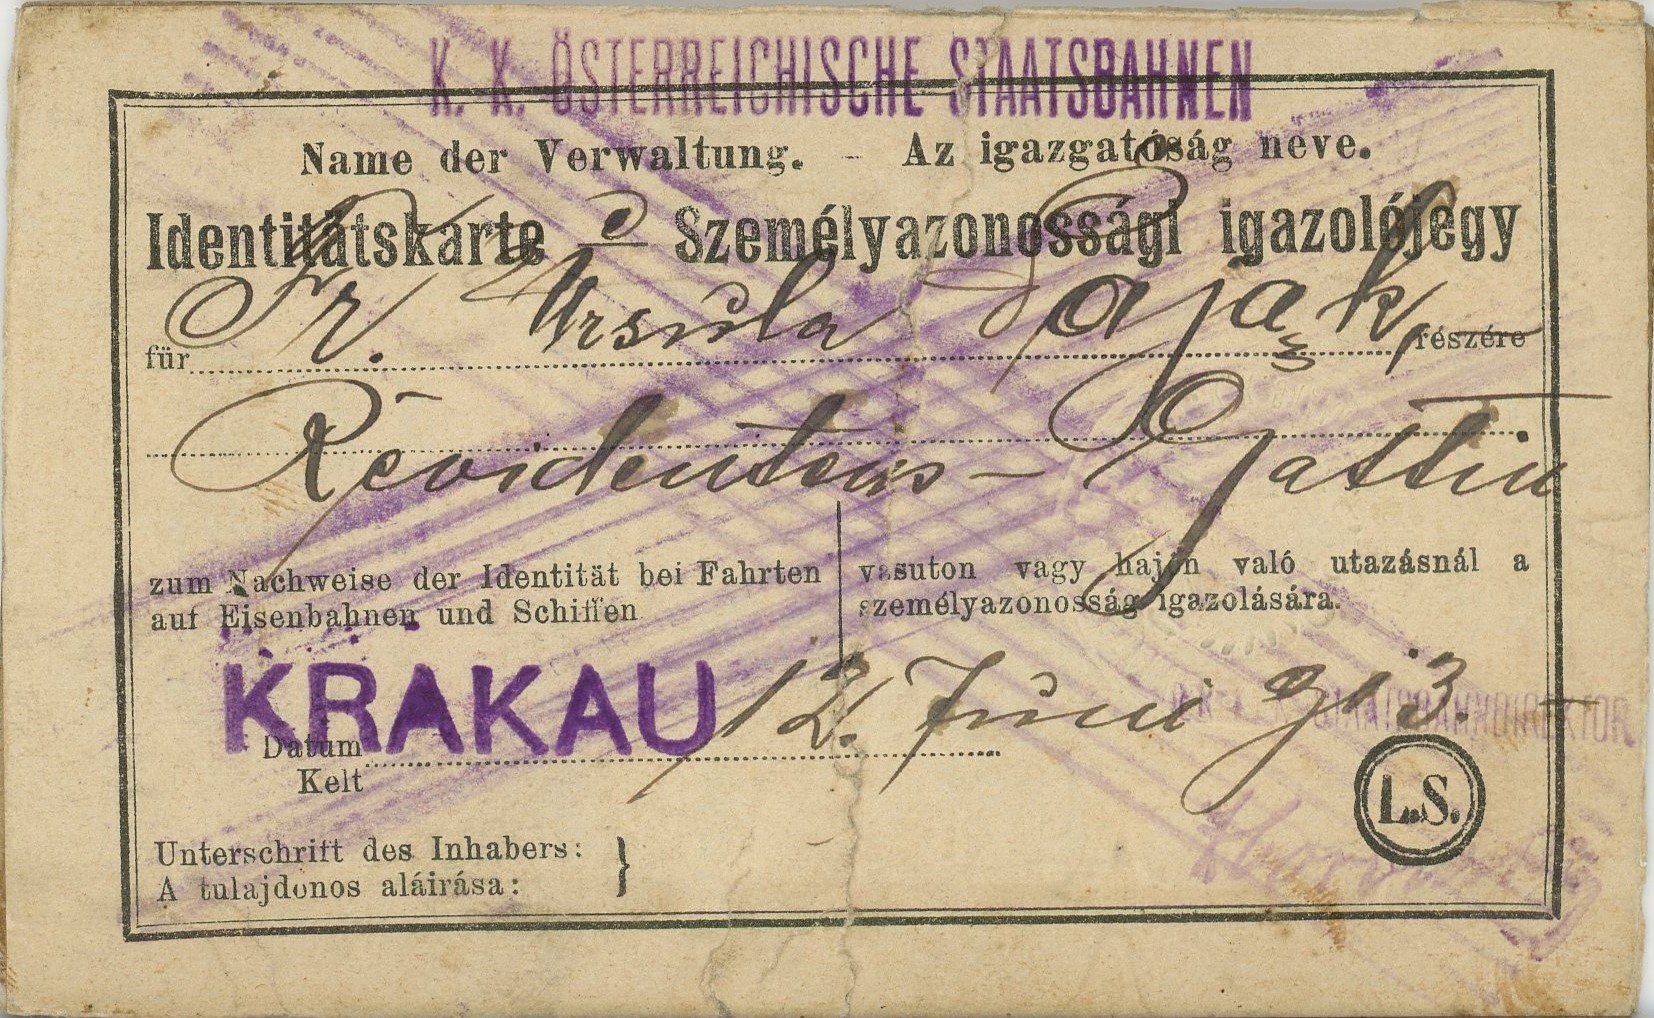 K. K. ÖSTERREICHISCHE STAATSBAHNEN
Name der Verwaltung. - Az igazgatóság neve.
Identitätskarte Személyazonossági igazolójegy
für Fr. Ursula Pająk, részére
Revidentens-Gattin
zum Nachweise der Identität bei Fahrten
auf Eisenbahnen und Schiffen
vasuton vagy hajón való utazásnál a
személyazonosság igazolására.
KRAKAU 12. Juni 913.
Datum
Kelt
STAATSBAHNDIREKTOR
L.S.
Unterschrift des Inhabers: }
A tulajdonos aláirása: